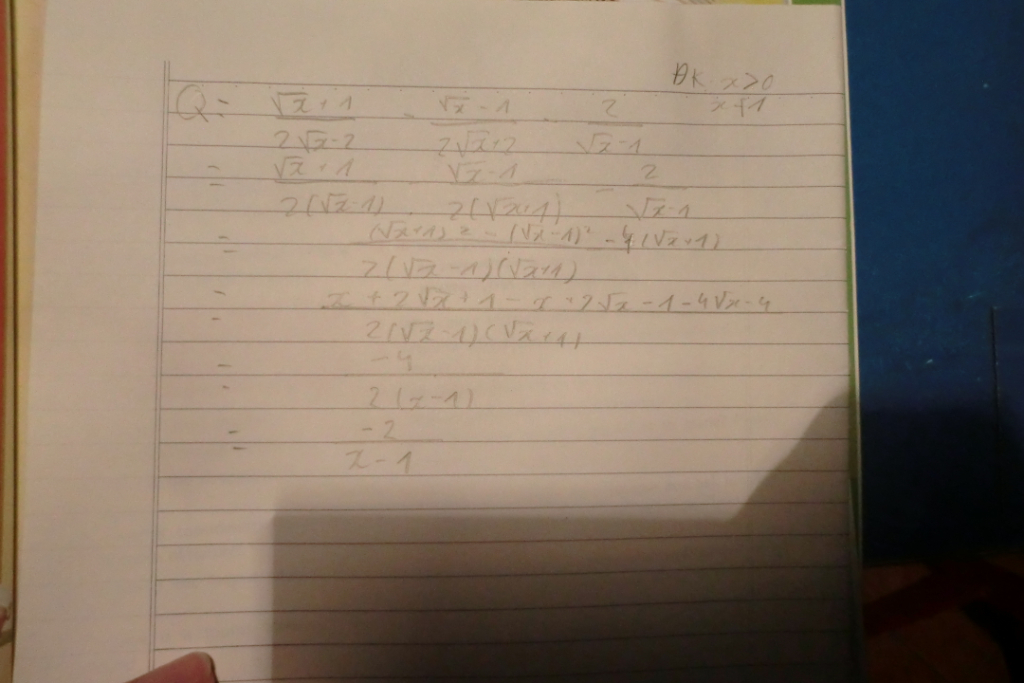 ĐK x>0
Q = (√x + 1)/(2√x - 2) - (√x - 1)/(2√x+2) - 2/(√x - 1)
x≠1
= (√x + 1)/(2(√x-1)) - (√x - 1)/(2(√x+1)) - 2/(√x-1)
= ((√x+1)² - (√x-1)² - 4(√x+1))/(2(√x-1)(√x+1))
= (x + 2√x + 1 - x + 2√x - 1 - 4√x - 4)/(2(√x-1)(√x+1))
= -4/(2(x-1))
= -2/(x-1)